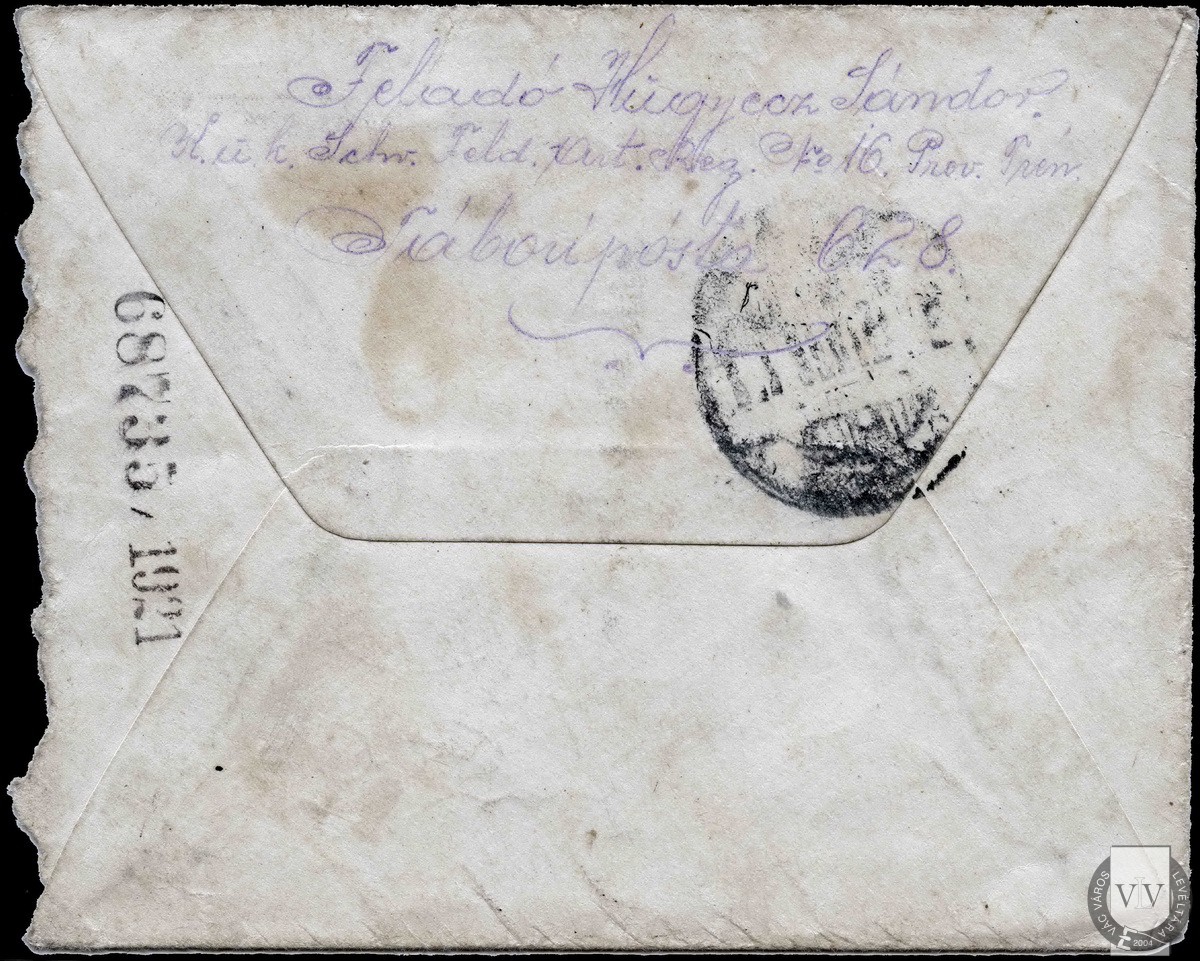 Feladó Hügyecz Sándor
K. u. k. Schw. Feld. Art. Reg. No 16. Prov. Trén.
Tábori pósta 628.
68735/1921
VÁC VÁROS LEVÉLTÁRA
VLV
2004